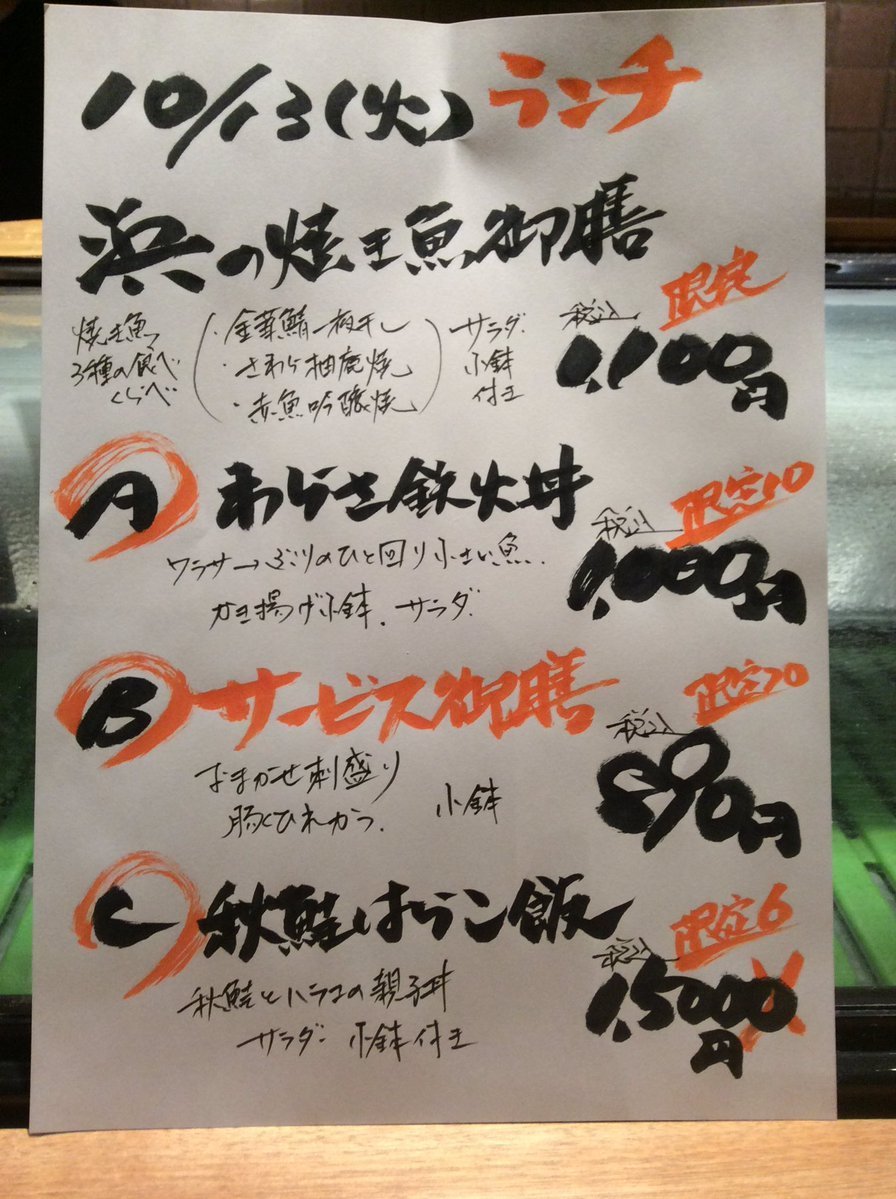 10/13(火) ランチ
浜の焼き魚御膳
限定
税込
1,100円
焼き魚
3種の食べ
くらべ
・金華鯖一夜干し
・さわら柚庵焼
・赤魚吟醸焼
サラダ
小鉢
付き
A わらさ鉄火丼
限定10
税込
1,000円
ワラサ→ぶりのひと回り小さい魚
かき揚げ小鉢、サラダ
B サービス御膳
限定20
税込
890円
おまかせ刺盛り
豚ひれかつ
小鉢
C 秋鮭はらこ飯
限定6
税込
1,5000
円
秋鮭とハラコの親子丼
サラダ 小鉢付き